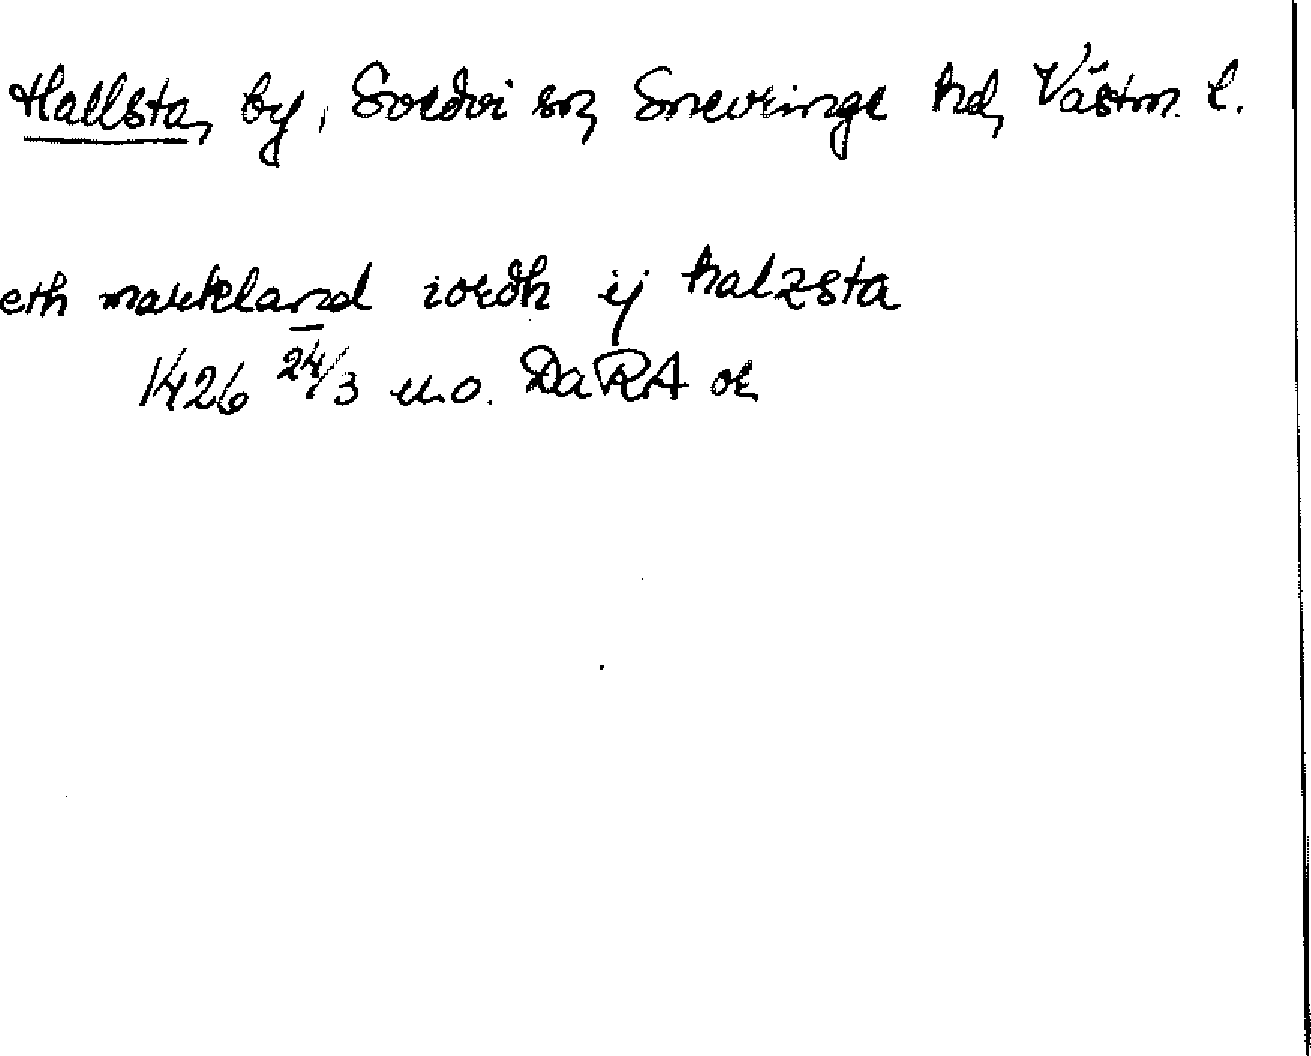 Hallsta, by, Svedvi sn, Snevringe hd, Västm. l.
eth markland iordh ij halzsta
1426 24/3 u.o. DaRA or